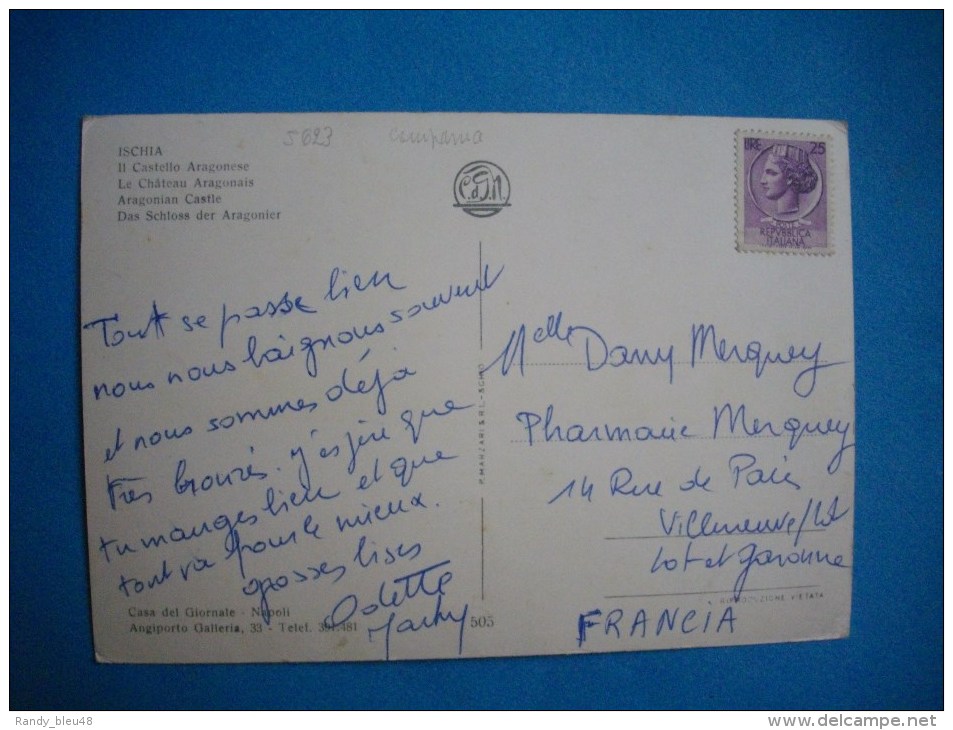 5623
Campania
ISCHIA
Il Castello Aragonese
Le Château Aragonais
Aragonian Castle
Das Schloss der Aragonier
C.d.G.N.
LIRE 25
REPVBBLICA
ITALIANA
Tout se passe bien
nous nous baignons souvent
et nous sommes déjà
très bronzés. j'espère que
tu manges bien et que
tout va pour le mieux.
grosses bises
Odette
P. MANZARI & R.L.
Melle Dany Merquey
Pharmacie Merquey
14 Rue de Paris
Villeneuve/Lot
Lot et Garonne
FRANCIA
RIPRODUZIONE VIETATA
Casa del Giornale - Napoli
Angiporto Galleria, 33 - Telef. 391.481
505
Randy_bleu48
delcampe.net